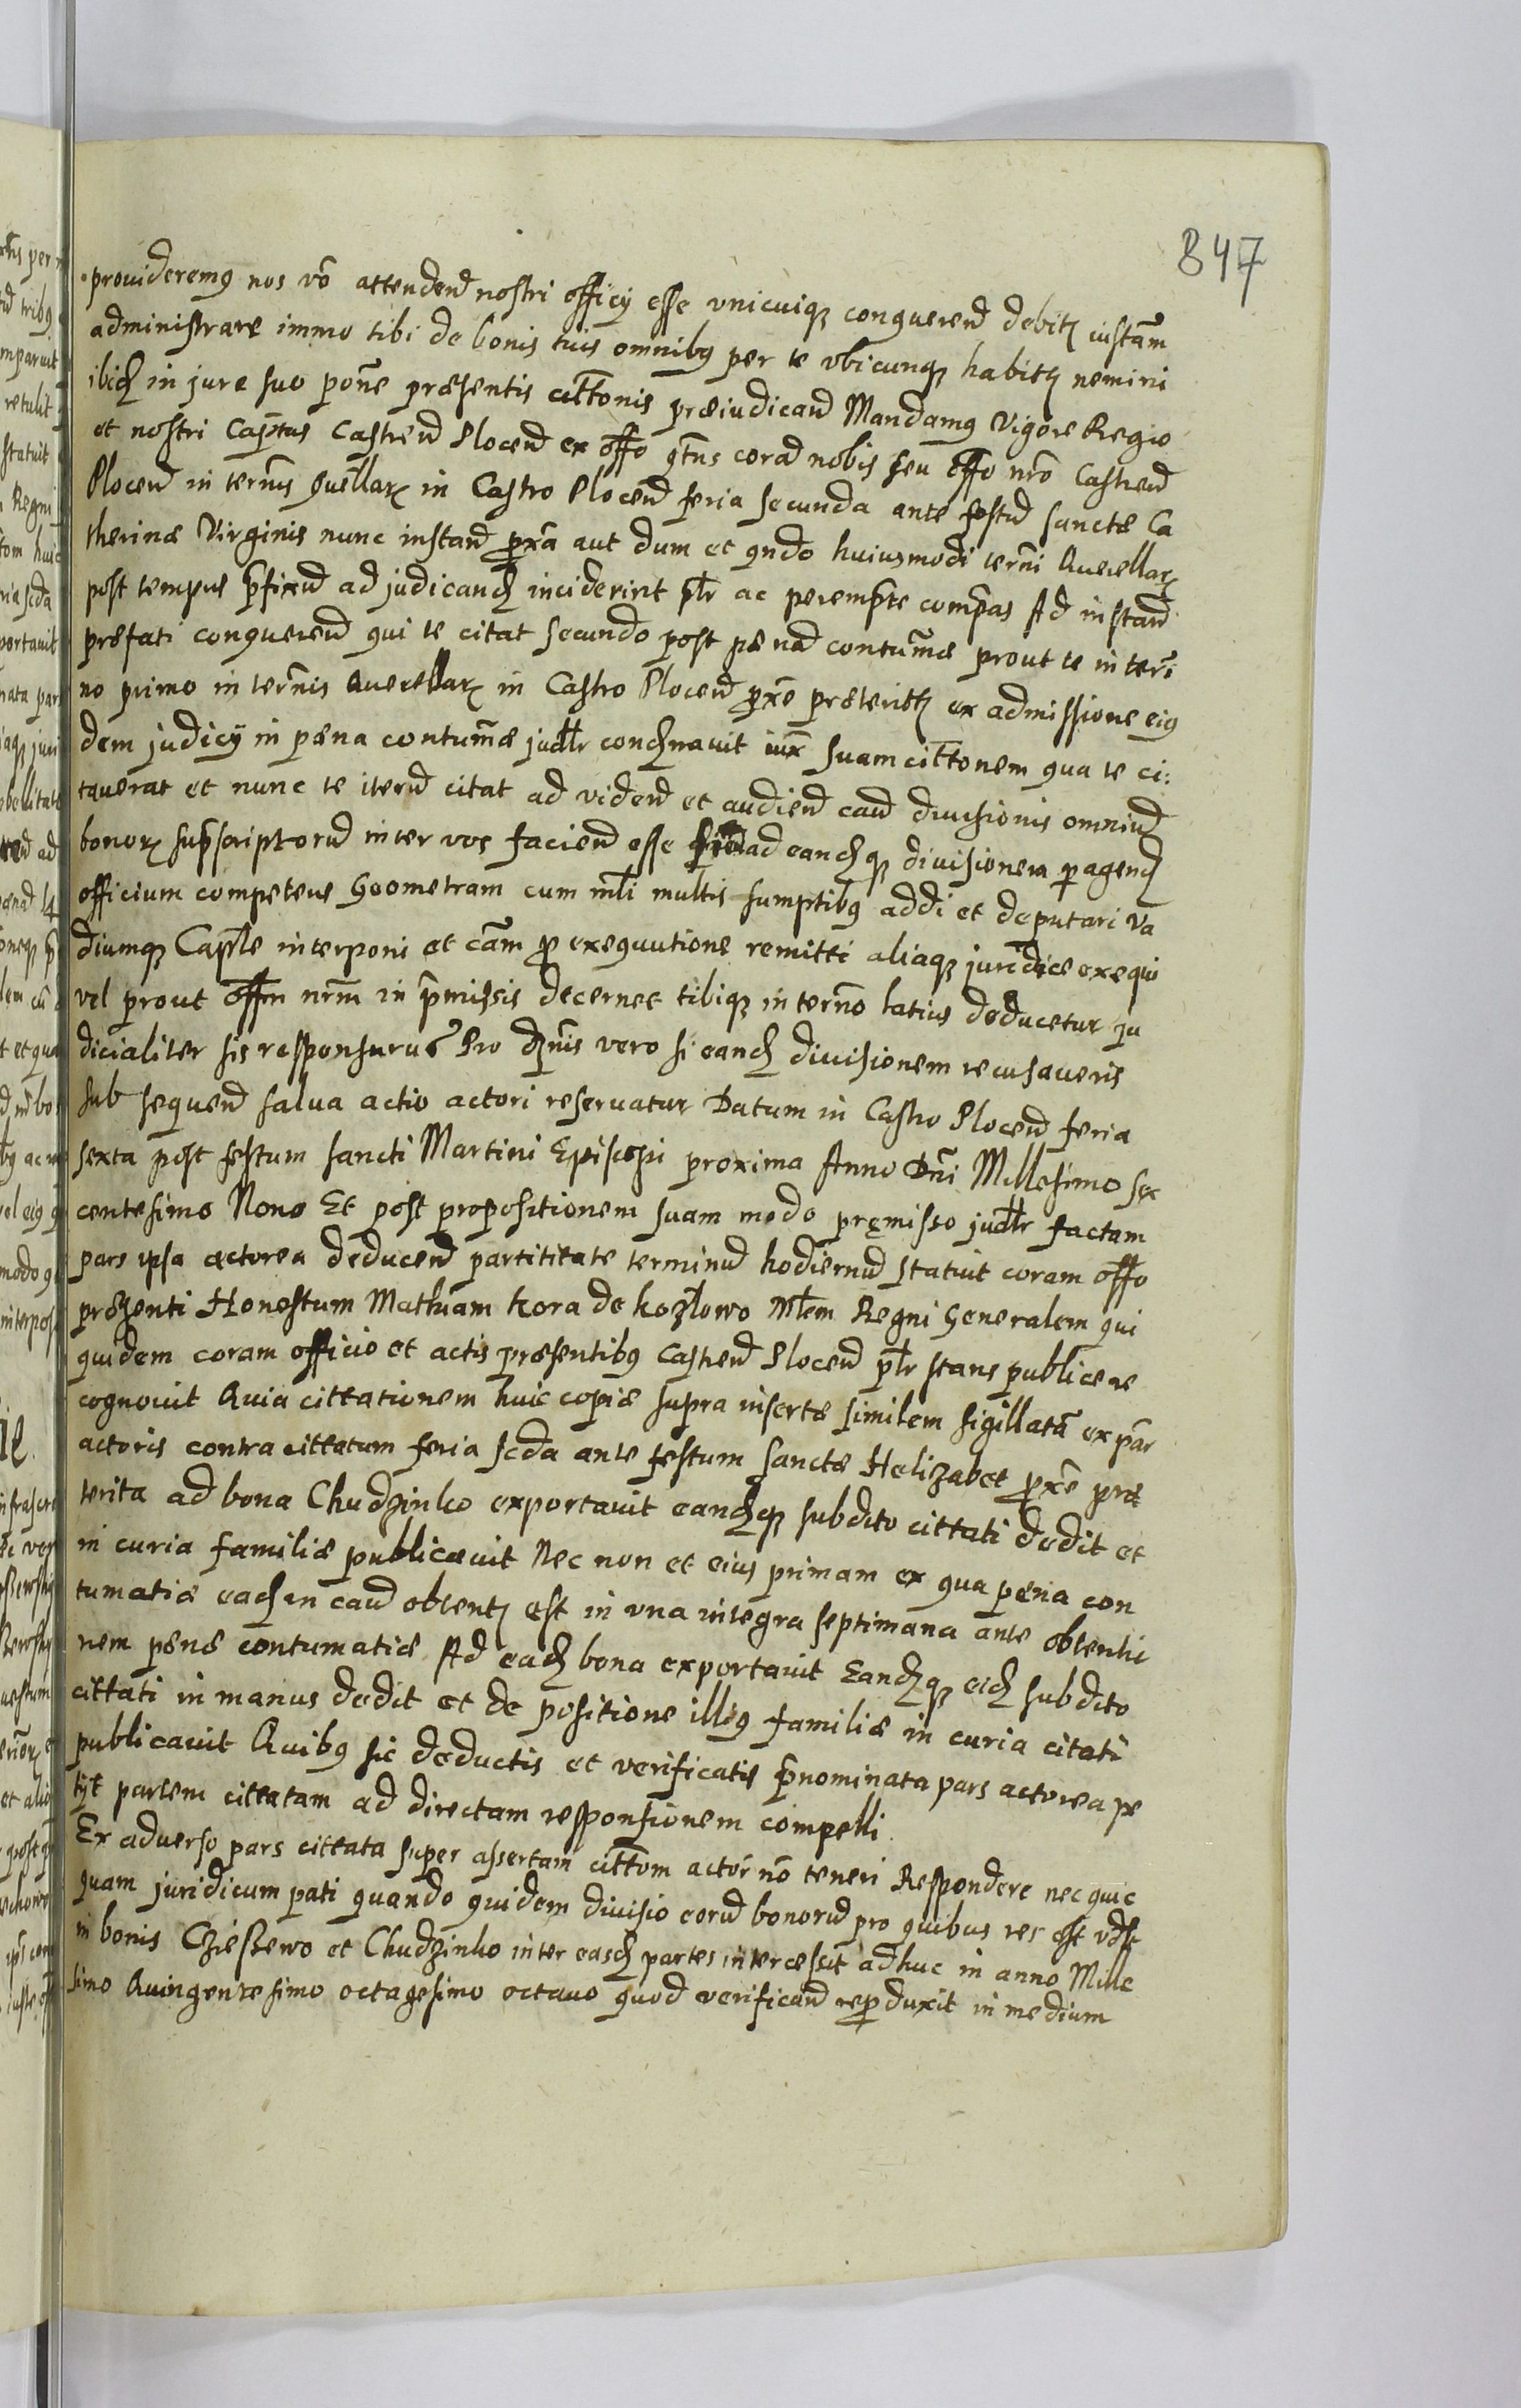 847
prouideremꝰ nos vō attendeñ nostri officij esse vnicuiqꝫ conquereñ debitꝫ iustam̃
administrare immo tibi de bonis tuis omnibꝰ per te vbicunqꝫ habitꝫ nemini
ibidꝫ in jure suo pōne præsentis cittōnis præiudicañ Mandamꝰ Vigore Regio
et nostri Captũs Castreñ Ploceñ ex offō qtñs corã nobis seu offō nrō Castreñ
Ploceñ in termĩs querellarꝫ in Castro Ploceñ feria secunda ante festũ sanctæ Ca
therinæ Virginis nunc instañ prox̃a aut dum et qndō huiusmodi termĩ Querellarꝫ
post tempus p̃fixũ ad judicandꝫ inciderint plr̃ ac perempt̃e comp̃as Ad instañ
præfati conquereñ qui te citat secundo post pænã contumæ̃ prout te in termĩ
no primo in termĩs Querellarꝫ in Castro Ploceñ prox̃e præteritꝫ ex admissione eiꝰ
dem judicij in pæna contumæ̃ judlr̃ condꝫnauit iux̃ suam cittōnem qua te ci:
tauerat et nunc te iterũ citat ad videñ et audieñ cañ diuisionis omniũ
bonorꝫ sup̃scriptorũ inter vos facieñ esse ad eandꝫqꝫ diuisionem peragendꝫ
officium competens Geometram cum mlĩ multis sumptibꝰ addi et deputari Va
diumqꝫ Capl̃e interponi et cãm pro exequutione remitti aliaqꝫ juridicæ exequi
vel prout offm̃ nrm̃ in p̃missis decernet tibiqꝫ in termõ latius deducetur ju
dicialiter sis responsurus Pro dꝫmĩs vero si eandꝫ diuisionem recusaueris
sub sequeñ salua actio actori reseruatur Datum in Castro Ploceñ feria
sexta post festum sancti Martini Episcopi proxima Anno Dñi Millesimo sex
centesimo Nono Et post propositionem suam modo pręmisso judlr̃ factam
pars ipsa actorea deduceñ partititate terminũ hodiernũ statuit coram offō
præsenti Honestum Mathiam Kora de Kozłowo Mlẽm Regni Generalem qui
quidem coram officio et actis præsentibꝰ Castreñ Ploceñ plr̃ stans publice re
cognouit Quia cittationem huic copiæ supra insertæ similem sigillatã ex pãr
actoris contra cittatum feria scda ante festum sanctæ Helizabet prox̃e præ
terita ad bona Chudzinko exportauit eandꝫqꝫ subdito cittati dedit et
in curia familiæ publicæuit Nec non et eius primam ex qua pæna con
tumatiæ eadꝫ in cañ obtentꝫ est in vna integra septimana ante obtentio
nem pænæ contumatiæ Ad eadꝫ bona exportauit Eandꝫqꝫ eidꝫ subdito
cittati in manus dedit et de positione illiꝰ familiæ in curia citati
publicauit Quibꝰ sic deductis et verificatis p̃nominata pars actorea pe
tijt partem cittatam ad directam responsionem compelli.
Ex aduerso pars cittata super assertam cittōm actor̃ nō teneri Respondere nec quic
quam juridicum pati quando quidem diuisio eorũ bonorũ pro quibus res est vdꝫlt
in bonis Czieszewo et Chudzinko inter easdꝫ partes intercessit adhuc in anno Mille
simo Quingentesimo octagesimo octauo quod verificañ reproduxit in medium